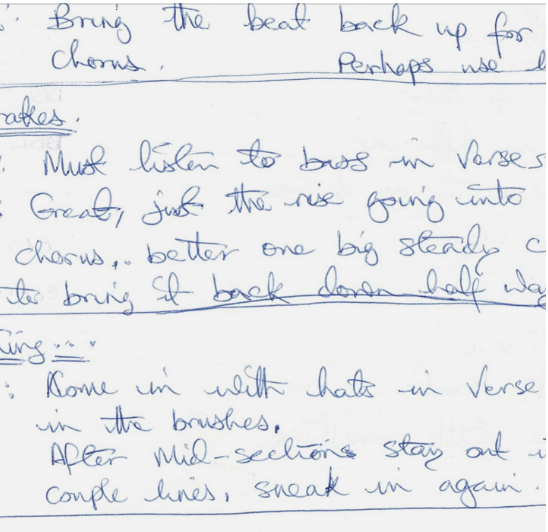 : Bring the beat back up for
Chorus. Perhaps use
akes.
: Must listen to bass in Verses
: Great, just the rise going into
chorus, better one big steady c
to bring it back down half way
ing
: Come in with hats in Verse
in the brushes.
After Mid-sections stay out
couple lines, sneak in again.